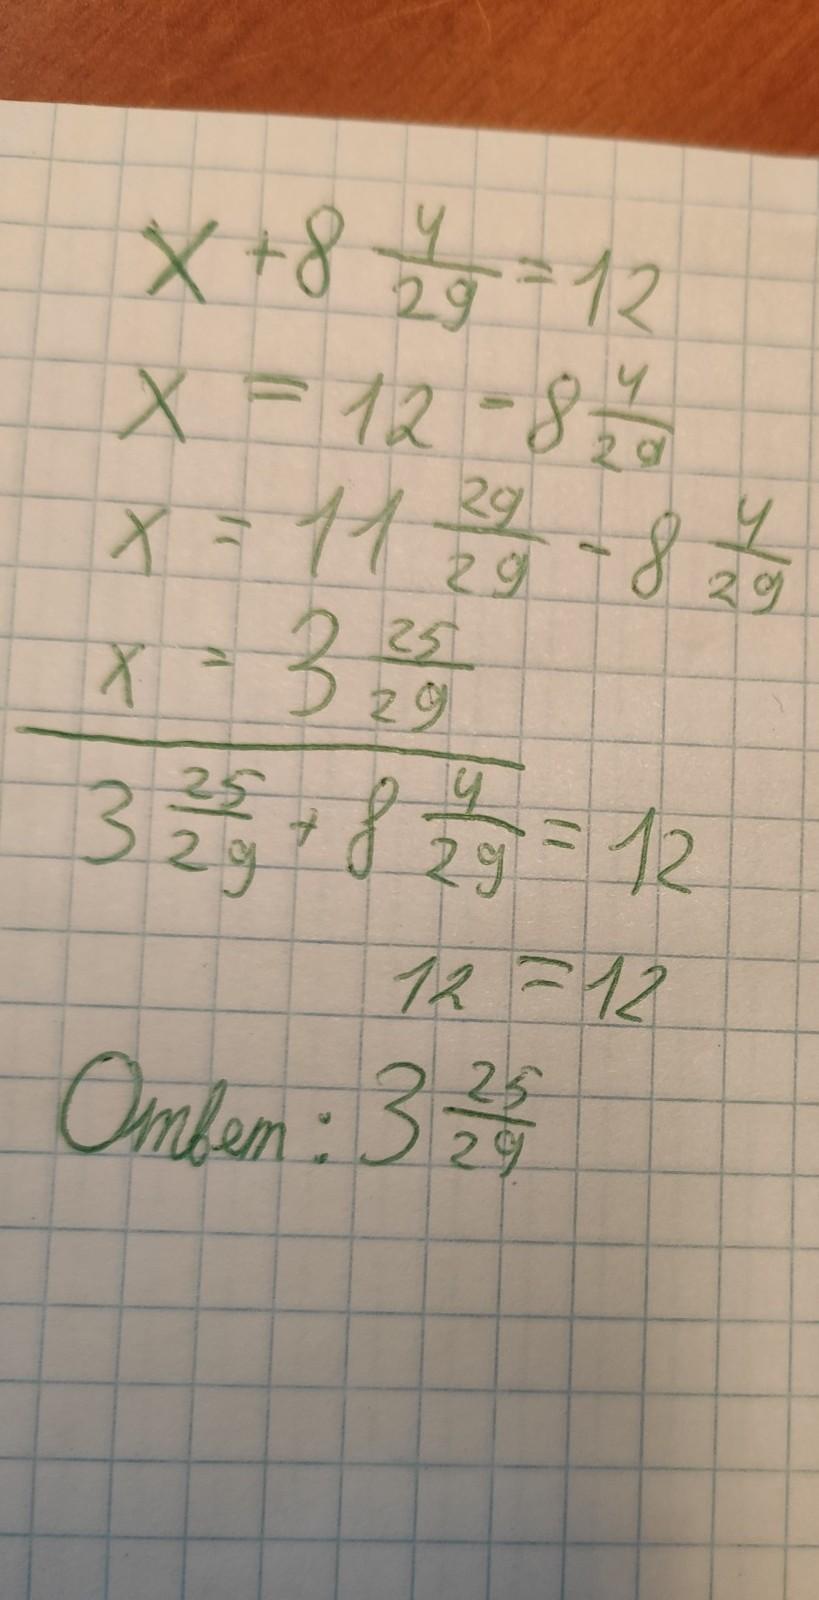 x + 8 4/29 = 12
x = 12 - 8 4/29
x = 11 29/29 - 8 4/29
x = 3 25/29
3 25/29 + 8 4/29 = 12
12 = 12
Ответ: 3 25/29